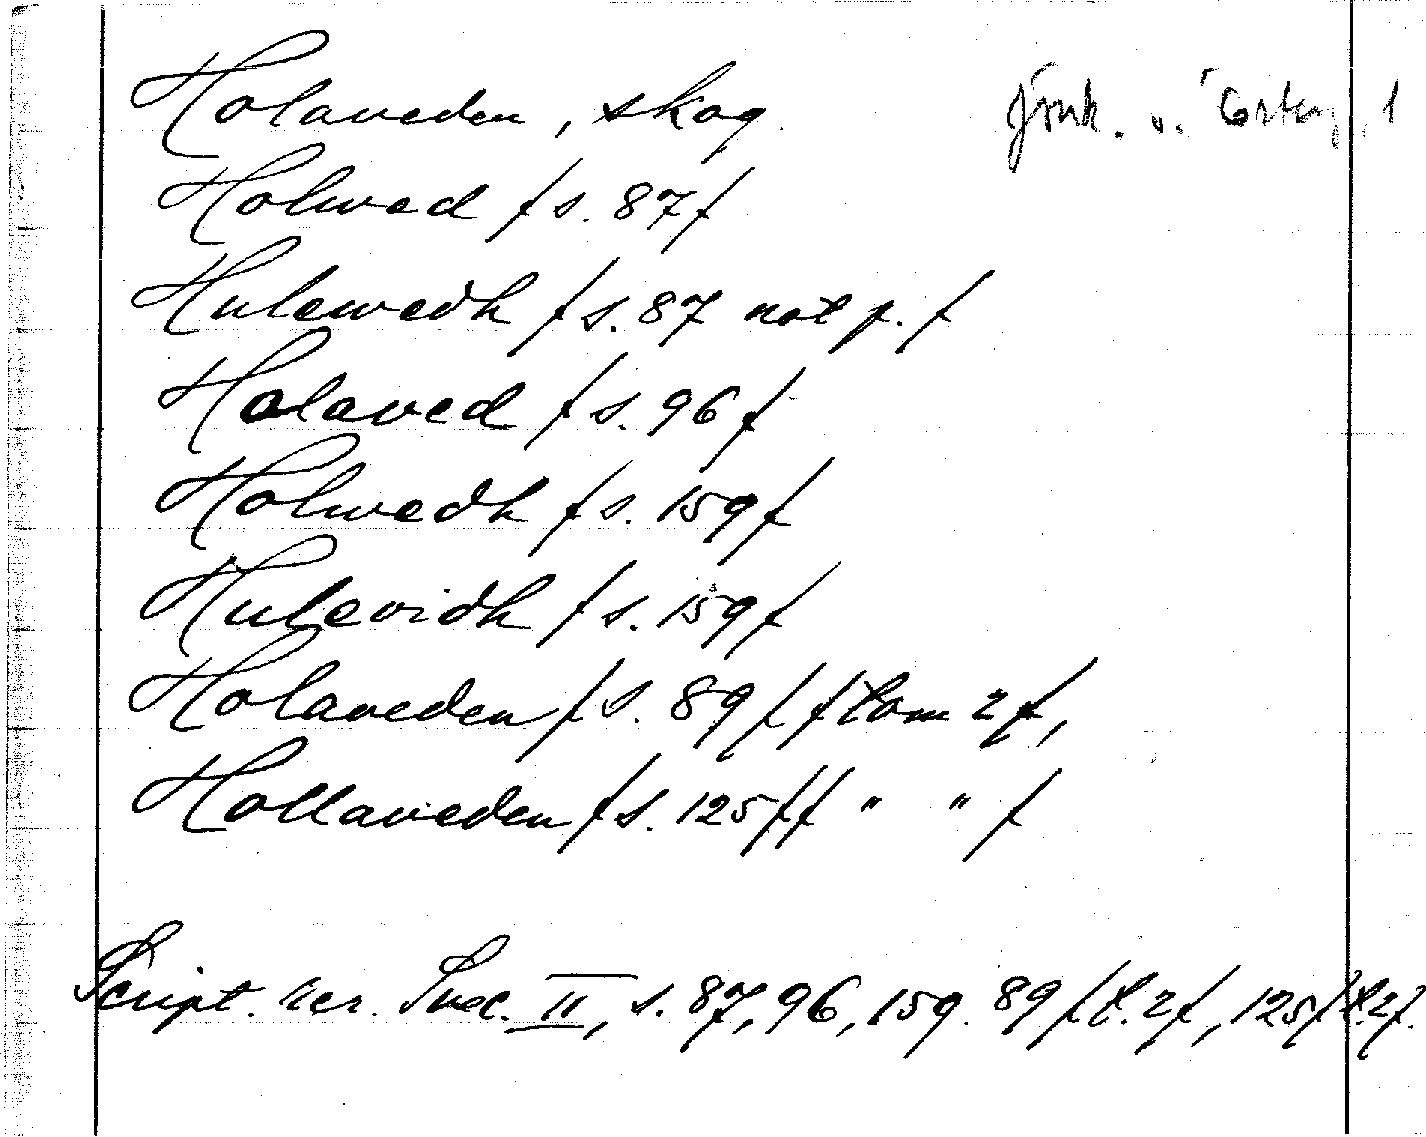 Holaveden, skog. Jönk. o. Österg. 1
Holwed /s. 87/
Hulewedh /s. 87 not p. /
Holaved /s. 96/
Holwedh /s. 159/
Hulevidh /s. 159/
Holaveden /s. 89/ /tom 2/,
Hollaveden /s. 125/ / " " /
Script. rer. Svec. II, s. 87, 96, 159. 89 /t. 2/, 125/t.2/.